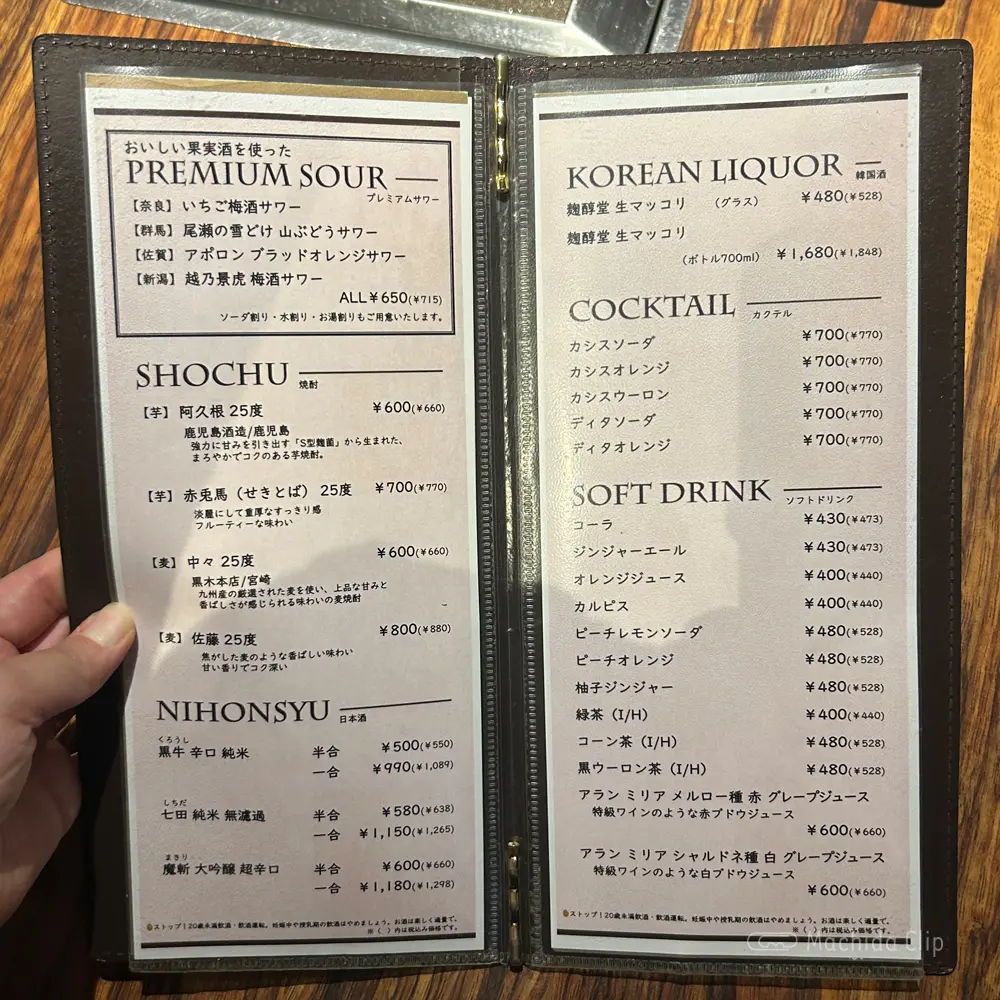 おいしい果実酒を使った
PREMIUM SOUR
プレミアムサワー
【奈良】いちご梅酒サワー
【群馬】尾瀬の雪どけ 山ぶどうサワー
【佐賀】アポロン ブラッドオレンジサワー
【新潟】越乃景虎 梅酒サワー
ALL¥650(¥715)
ソーダ割り・水割り・お湯割りもご用意いたします。
SHOCHU
焼酎
【芋】阿久根 25度 ¥600(¥660)
鹿児島酒造/鹿児島
強力に甘みを引き出す「S型麹菌」から生まれた、
まろやかでコクのある芋焼酎。
【芋】赤兎馬（せきとば） 25度 ¥700(¥770)
淡麗にして重厚なすっきり感
フルーティーな味わい
【麦】中々 25度 ¥600(¥660)
黒木本店/宮崎
九州産の厳選された麦を使い、上品な甘みと
香ばしさが感じられる味わいの麦焼酎
【麦】佐藤 25度 ¥800(¥880)
焦がした麦のような香ばしい味わい
甘い香りでコク深い
NIHONSYU
日本酒
くろうし
黒牛 辛口 純米 半合 ¥500(¥550)
一合 ¥990(¥1,089)
しちだ
七田 純米 無濾過 半合 ¥580(¥638)
一合 ¥1,150(¥1,265)
まきり
魔斬 大吟醸 超辛口 半合 ¥600(¥660)
一合 ¥1,180(¥1,298)
ストップ！20歳未満飲酒・飲酒運転。妊娠中や授乳期の飲酒はやめましょう。お酒は楽しく適量で。
※（ ）内は税込み価格です。
KOREAN LIQUOR
韓国酒
麹醇堂 生マッコリ （グラス） ¥480(¥528)
麹醇堂 生マッコリ
（ボトル700ml） ¥1,680(¥1,848)
COCKTAIL
カクテル
カシスソーダ ¥700(¥770)
カシスオレンジ ¥700(¥770)
カシスウーロン ¥700(¥770)
ディタソーダ ¥700(¥770)
ディタオレンジ ¥700(¥770)
SOFT DRINK
ソフトドリンク
コーラ ¥430(¥473)
ジンジャーエール ¥430(¥473)
オレンジジュース ¥400(¥440)
カルピス ¥400(¥440)
ピーチレモンソーダ ¥480(¥528)
ピーチオレンジ ¥480(¥528)
柚子ジンジャー ¥480(¥528)
緑茶（I/H） ¥400(¥440)
コーン茶（I/H） ¥480(¥528)
黒ウーロン茶（I/H） ¥480(¥528)
アラン ミリア メルロー種 赤 グレープジュース
特級ワインのような赤ブドウジュース
¥600(¥660)
アラン ミリア シャルドネ種 白 グレープジュース
特級ワインのような白ブドウジュース
¥600(¥660)
ストップ！20歳未満飲酒・飲酒運転。妊娠中や授乳期の飲酒はやめましょう。お酒は楽しく適量で。
※（ ）内は税込み価格です。
Machida Clip